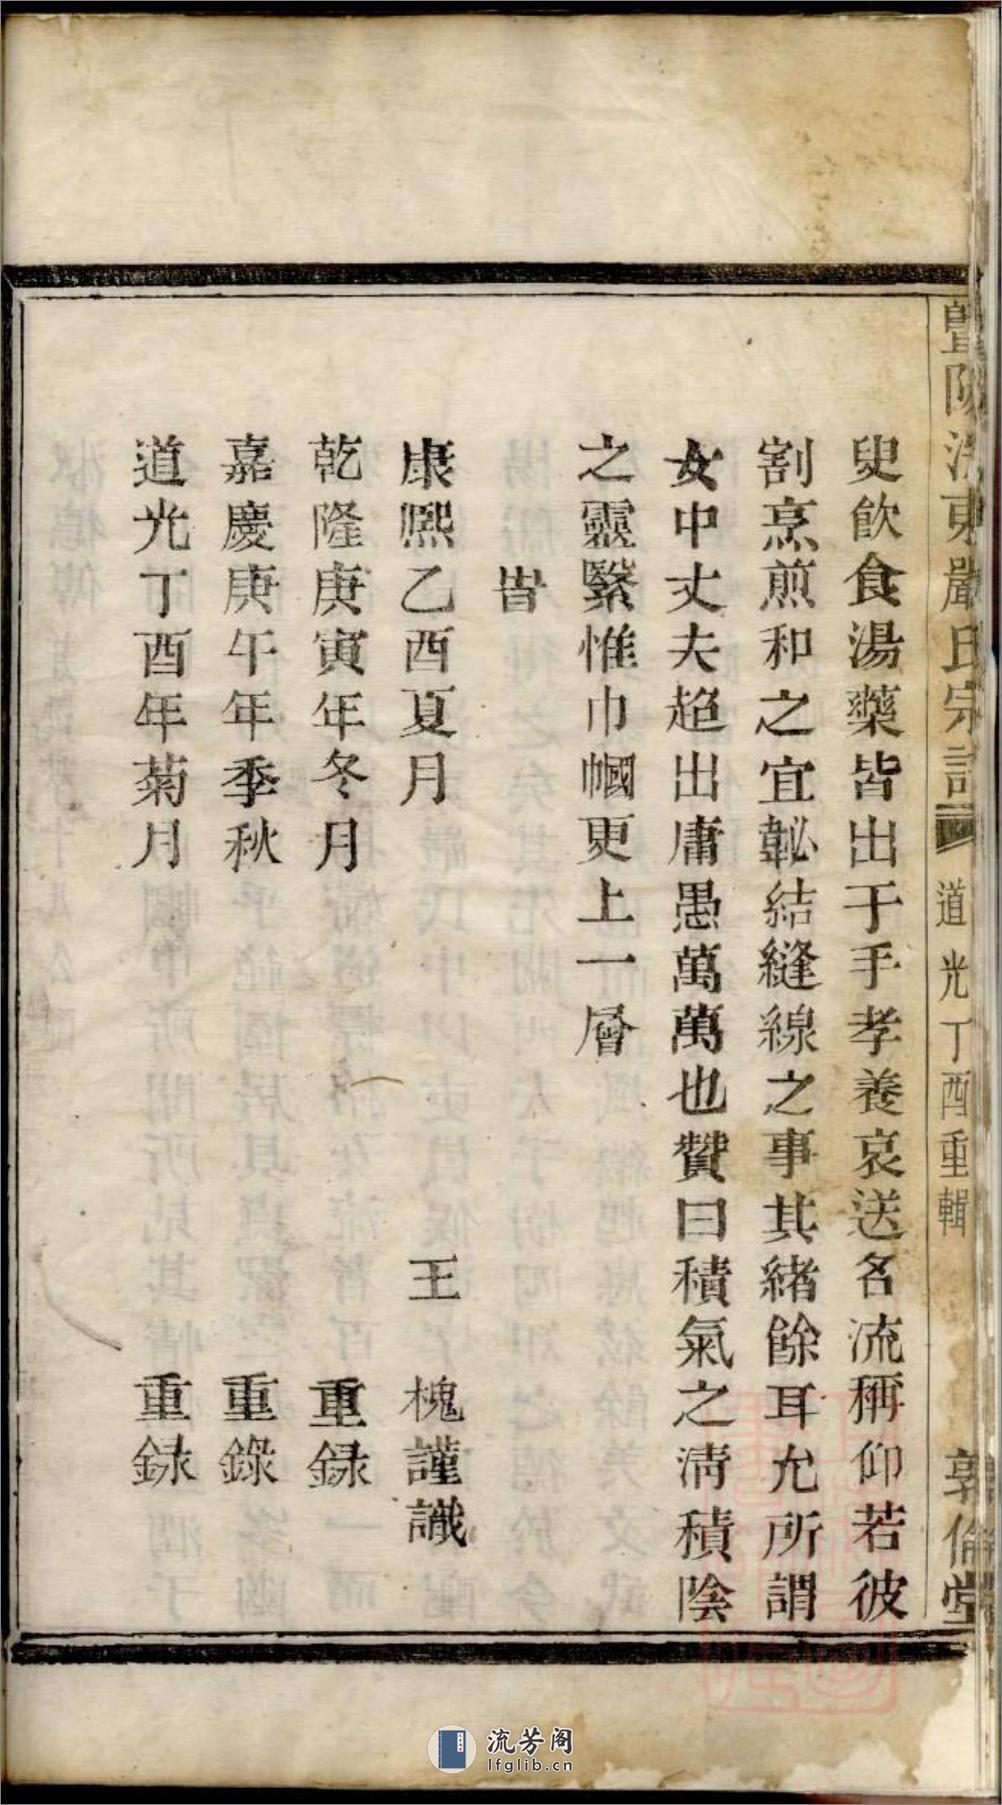 暨陽浣東嚴氏宗譜 道光丁酉重輯 敦倫堂
臾飲食湯藥皆出于手孝養哀送名流稱仰若彼
割烹煎和之宜鞑結縫線之事其緒餘耳允所謂
女中丈夫超出庸愚萬萬也贊曰積氣之淸積陰
之靈繄惟巾幗更上一層
旹
康熙乙酉夏月 王 槐謹識
乾隆庚寅年冬月 重録
嘉慶庚午年季秋 重錄
道光丁酉年菊月 重録
流芳阁
lfglib.cn